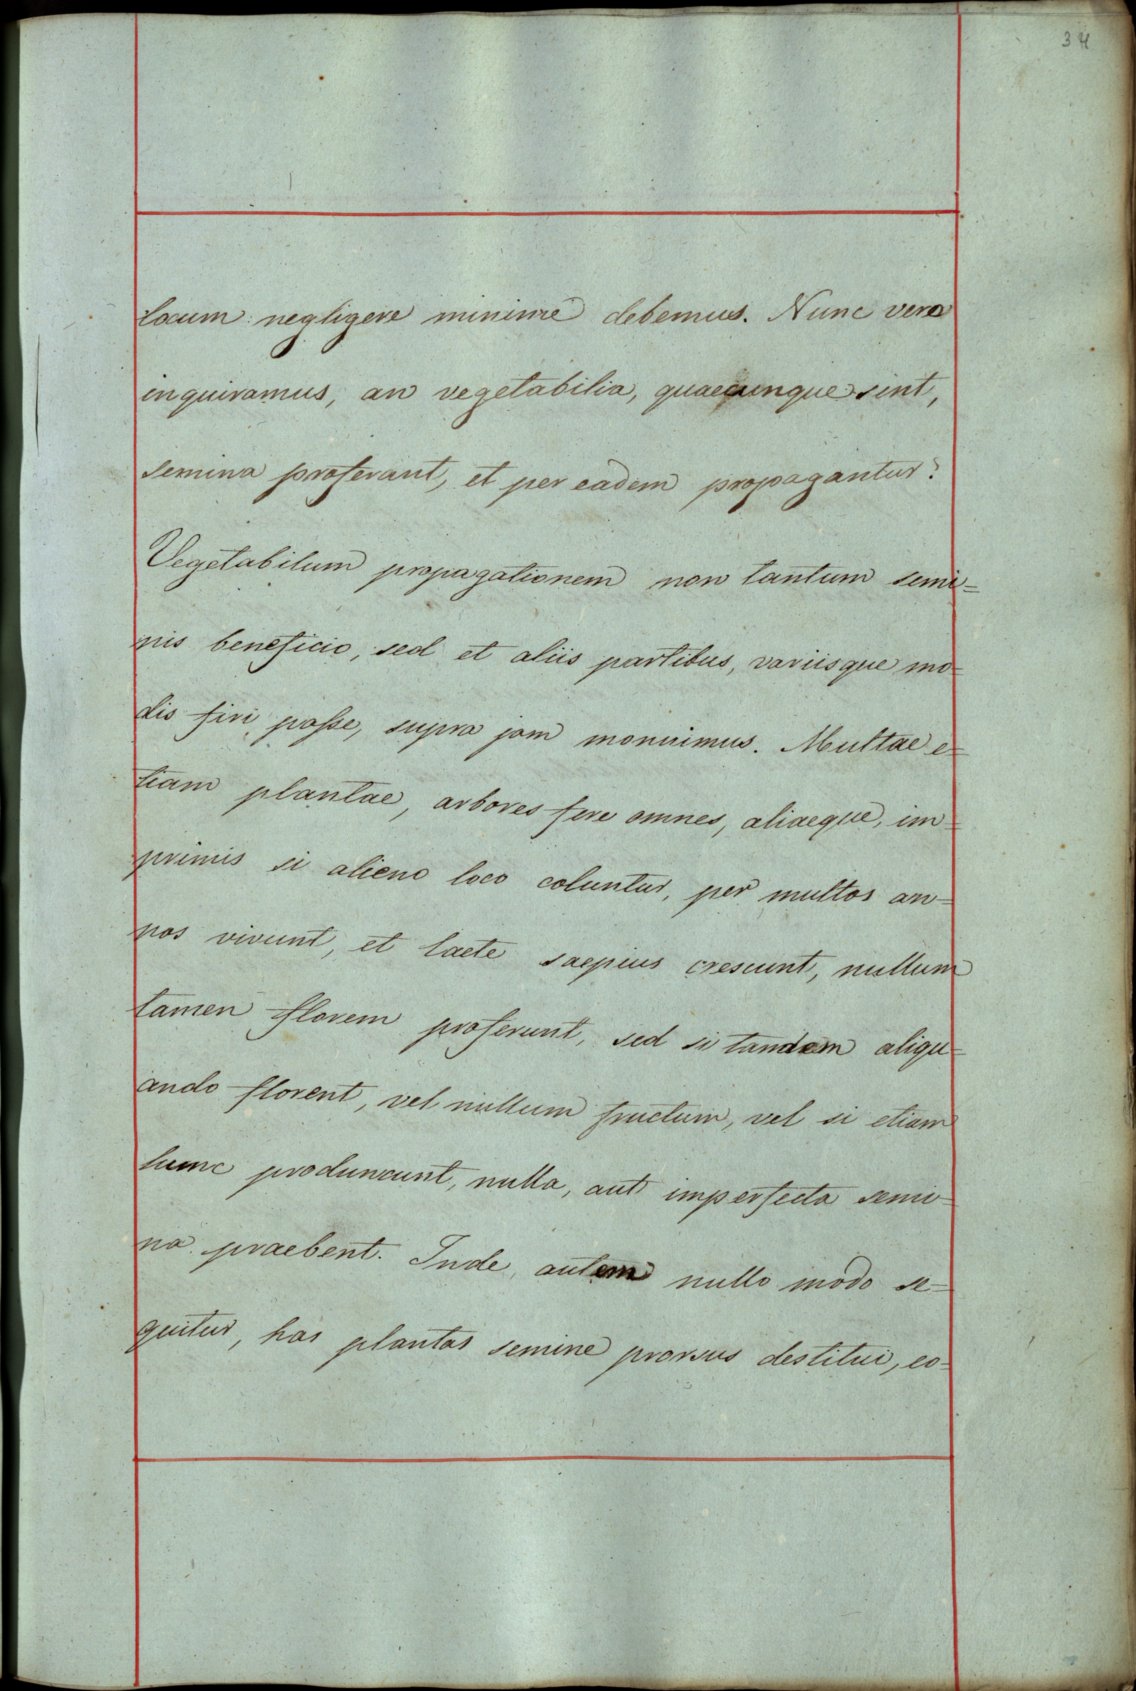 34
locum negligere minime debemus. Nunc vero
inquiramus, an vegetabilia, quaecunque sint,
semina proferant, et per eadem propagantur?
Vegetabilum propagationem non tantum semi=
nis beneficio, sed et aliis partibus, variisque mo=
dis firi posse, supra jam monuimus. Multae e=
tiam plantae, arbores fere omnes, aliaeque, im=
primis si alieno loco coluntur, per multos an=
nos vivunt, et laete saepius crescunt, nullum
tamen florem proferunt, sed si tandem aliqu=
ando florent, vel nullum fructum, vel si etiam
hunc producunt, nulla, aut imperfecta semi=
na praebent. Inde, autem nullo modo se=
quitur, has plantas semine prorsus destitui, eo=